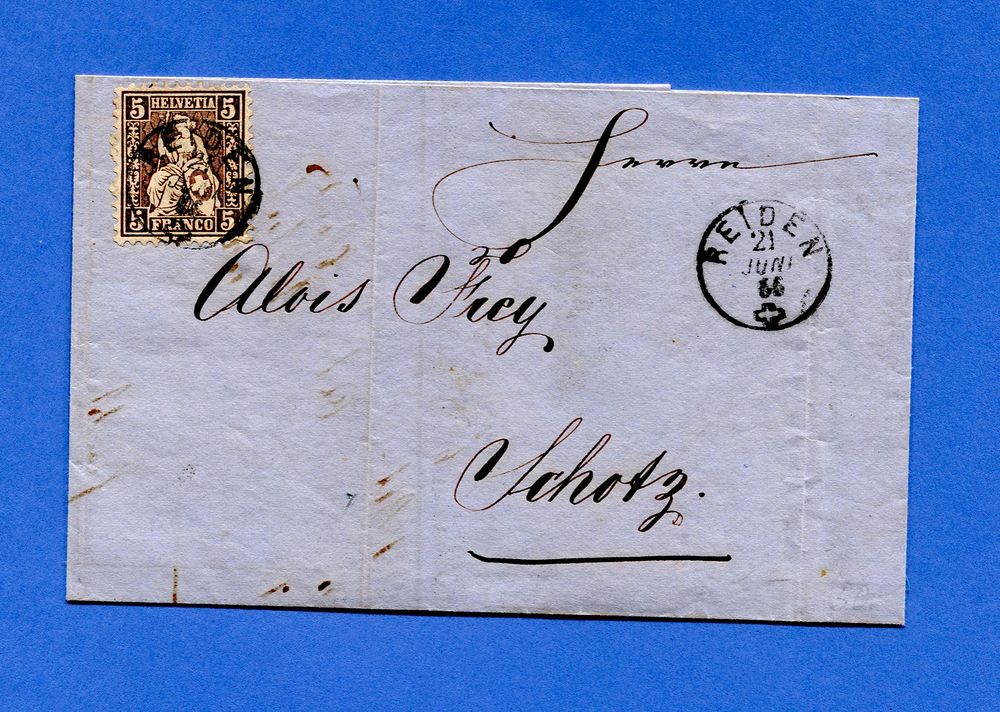 5 HELVETIA 5
5 FRANCO 5
Herrn
Alois Frey
Schötz.
REIDEN
21
JUNI
66